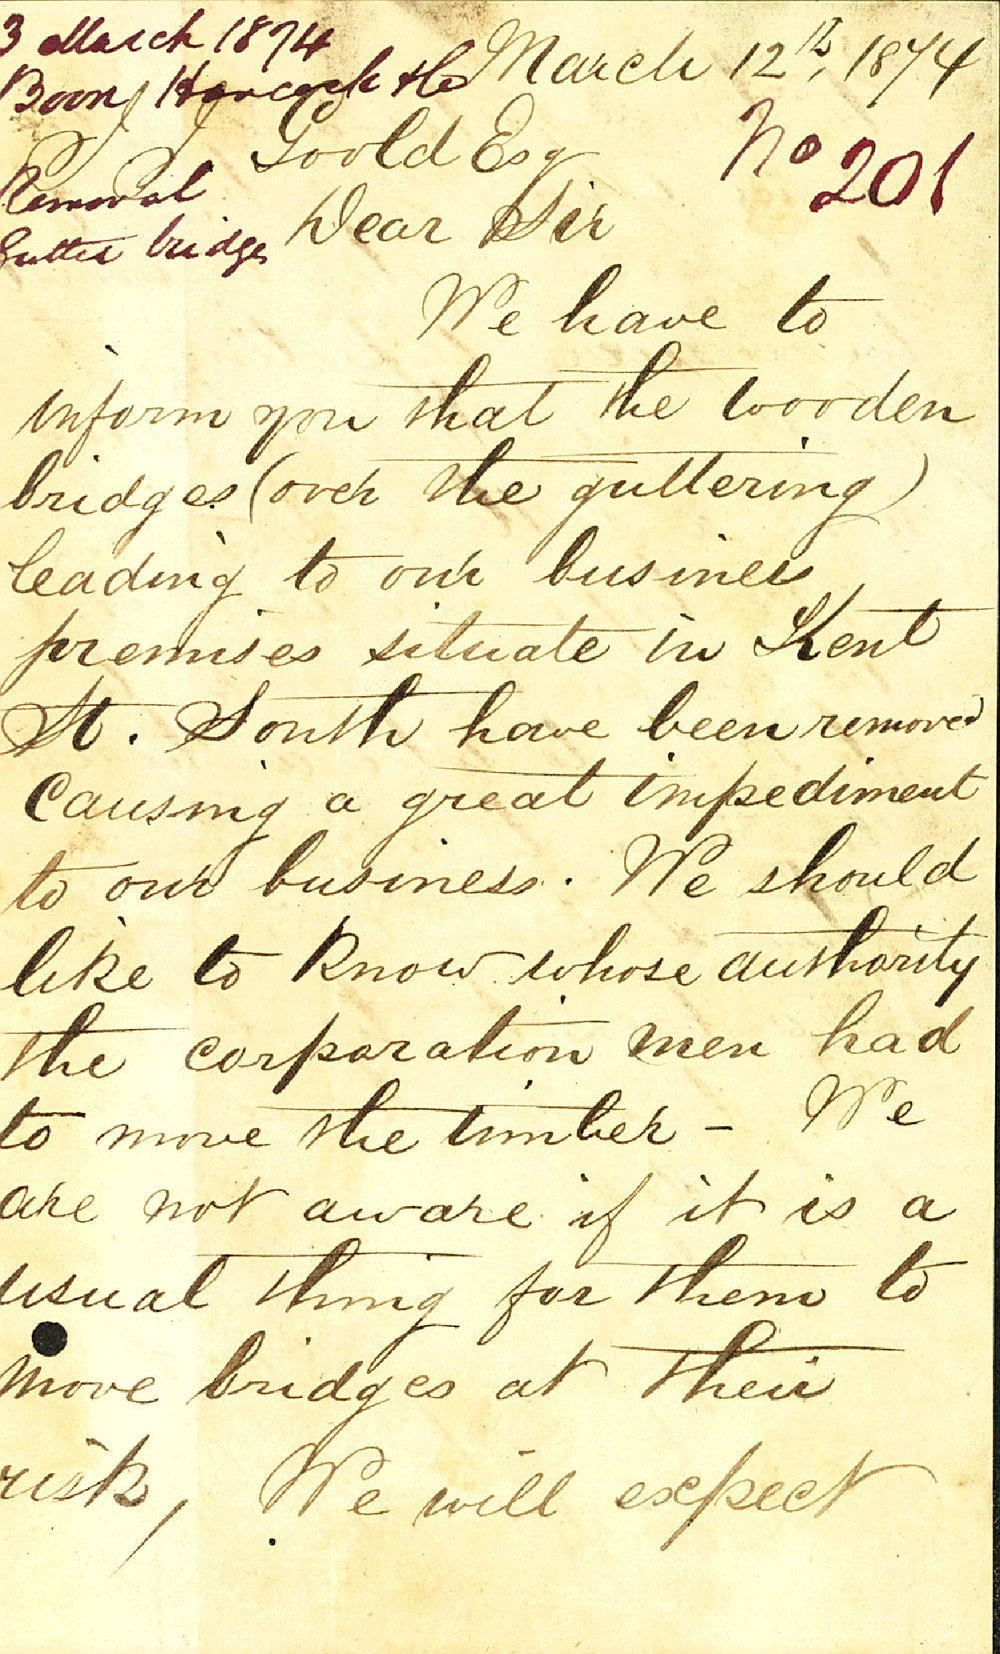 3 March 1874
Boon, Hancock & Co
Removal
Gutter bridge
March 12th, 1874
No 201
Goold Esq
Dear Sir
We have to
inform you that the wooden
bridges (over the guttering)
leading to our business
premises situate in Kent
St. South have been removed
causing a great impediment
to our business. We should
like to know whose authority
the corporation men had
to move the timber - We
are not aware if it is a
usual thing for them to
move bridges at their
risk, We will expect